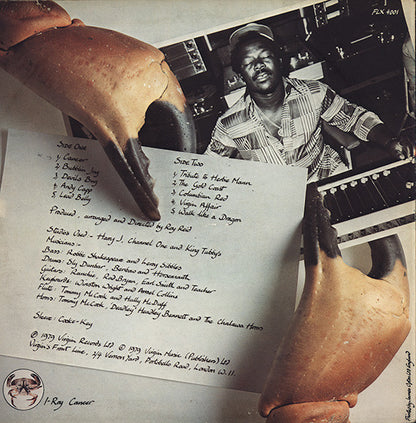 FLX 4001
SIDE ONE
1, Cancer
2, Bubblin, Jug
3, Devils Bug
4, Andy Capp
5, Laid Billy
SIDE TWO
1 Tribute to Herbie Mann
2 The Gold Coast
3 Columbian Red
4 Virgin Affair
5 Walk Like a Dragon
Produced, arranged and Directed by Ray Reid
Studios Used - Harry J, Channel One and King Tubby's
Musicians -
Bass: Robbie Shakespeare and Leroy Sibbles
Drums: Sly Dunbar, Benbow and Horsemouth
Guitars: Ranchie, Rad Bryan, Earl Smith and Teacher
Keyboards: Winston Wright and Ansel Collins
Flute: Tommy McCook and Hully McDuff
Horns: Tommy McCook, Deadley Headley Bennett and The Chalawa Horns
Sleeve: Cooke-Key
℗ 1979 Virgin Records Ltd © 1979 Virgin Music (Publishers) Ltd
Virgin's Front Line, 2/4 Vernon Yard, Portobello Road, London W.11.
I-Ray Cancer